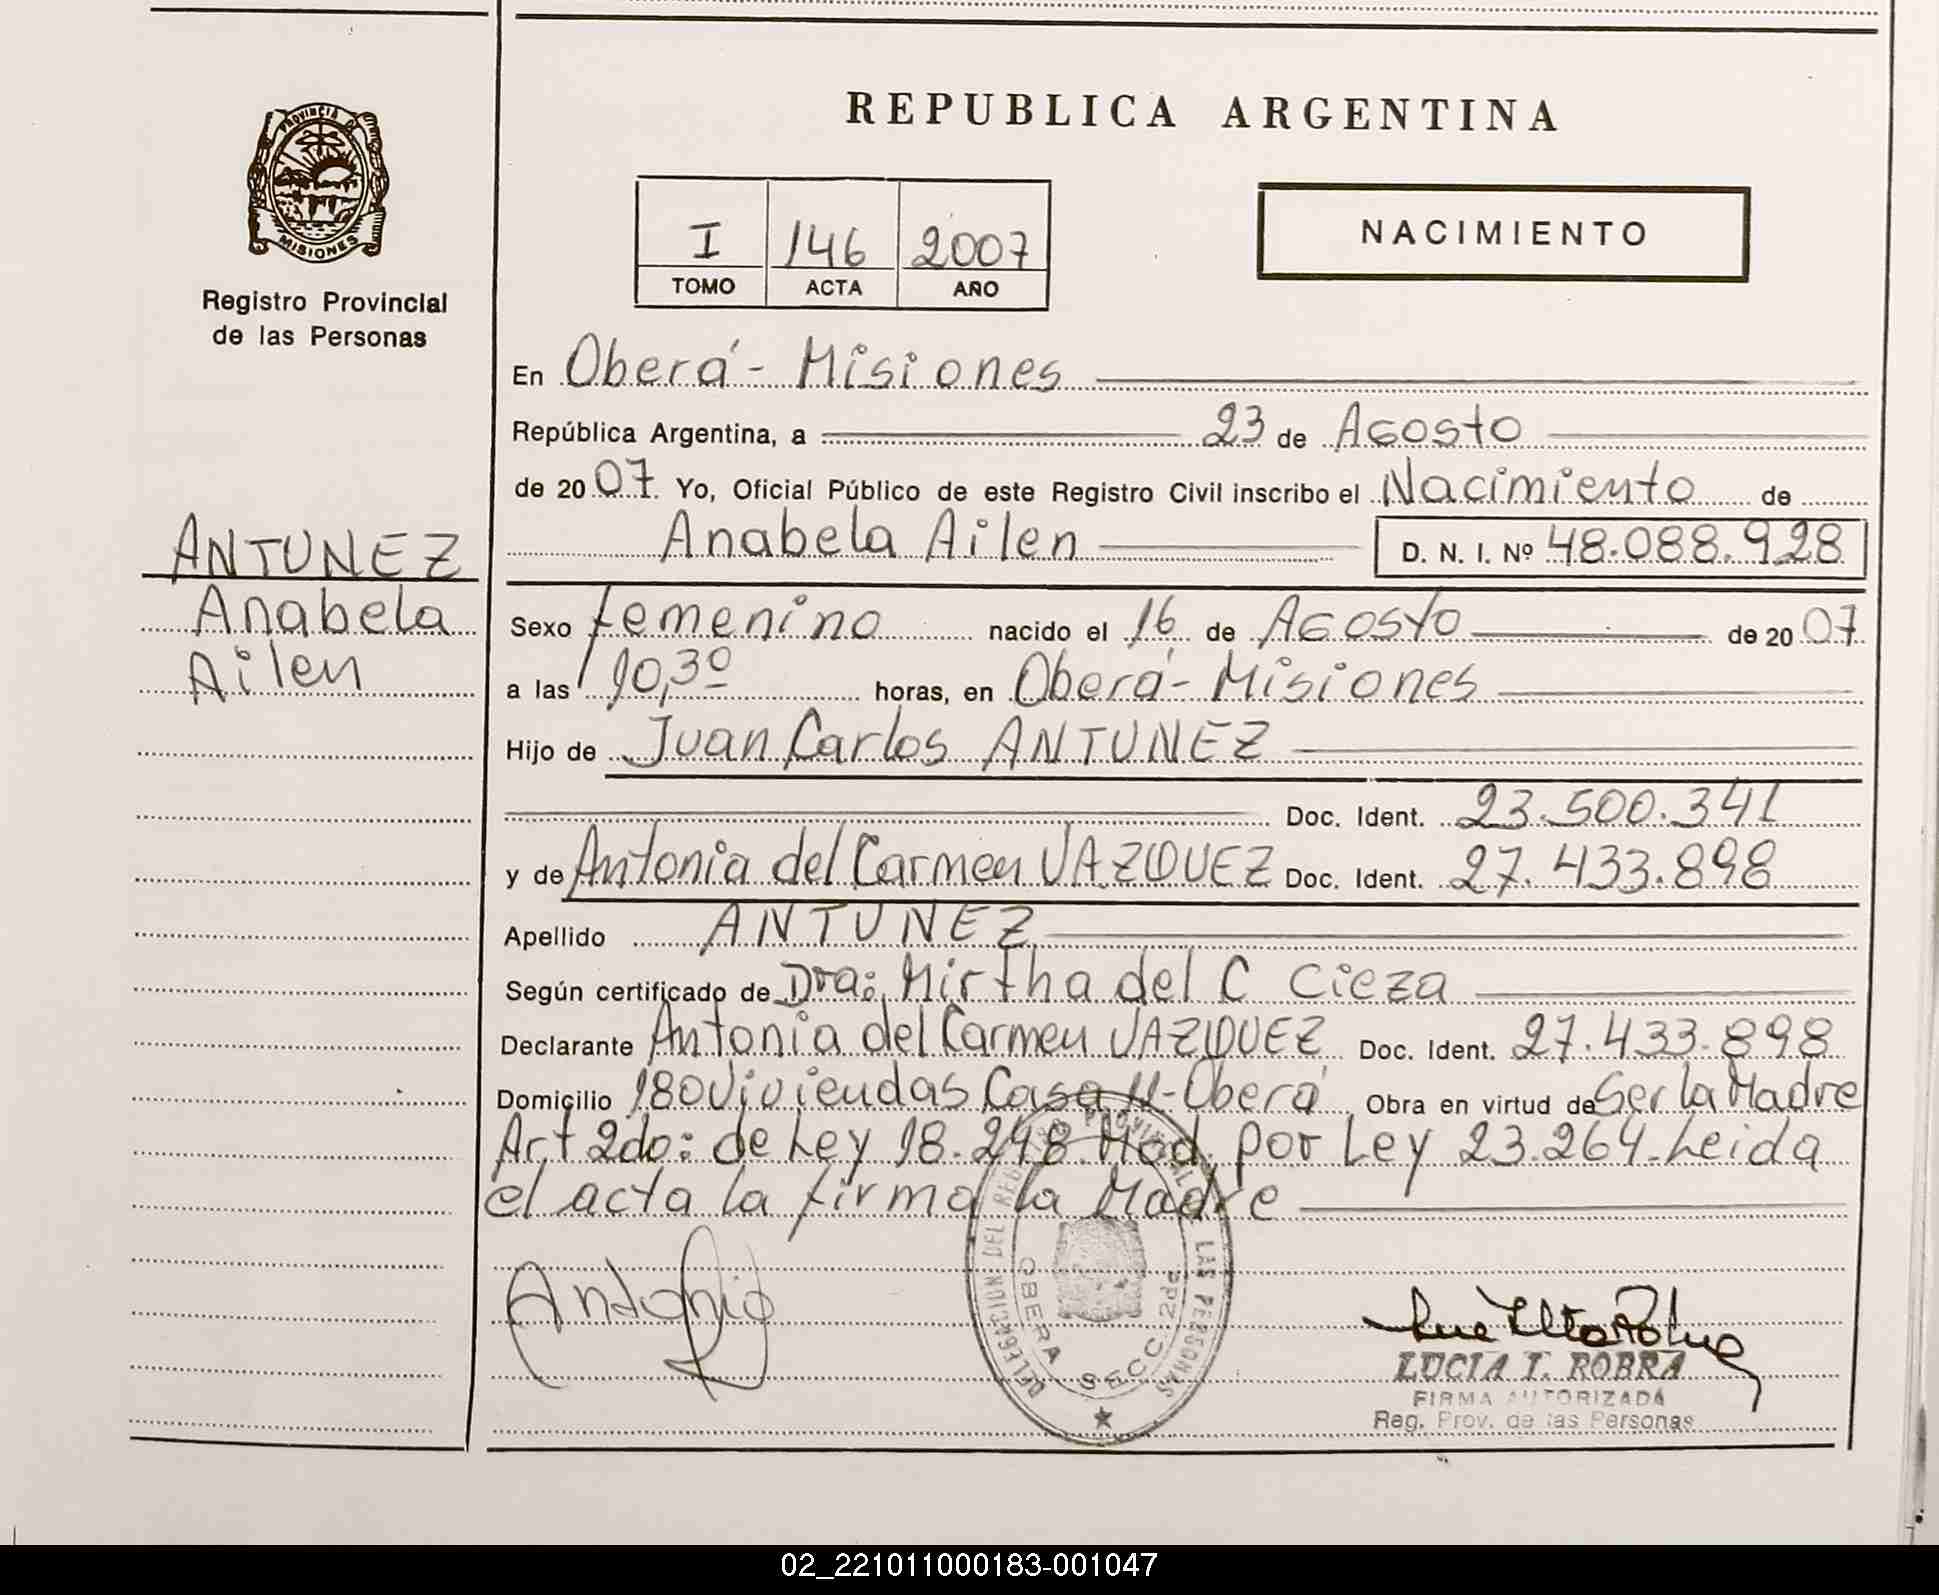 REPUBLICA ARGENTINA
PROVINCIA DE
MISIONES
Registro Provincial
de las Personas
I 146 2007
TOMO ACTA AÑO
NACIMIENTO
En Oberá - Misiones
República Argentina, a 23 de Agosto
de 2007. Yo, Oficial Público de este Registro Civil inscribo el Nacimiento de
Anabela Ailen D. N. I. Nº 48.088.928
ANTUNEZ
Anabela
Ailen
Sexo femenino nacido el 16 de Agosto de 2007
a las 10,30 horas, en Oberá - Misiones
Hijo de Juan Carlos ANTUNEZ
Doc. Ident. 23.500.341
y de Antonia del Carmen VAZQUEZ Doc. Ident. 27.433.898
Apellido ANTUNEZ
Según certificado de Dra: Mirtha del C Cieza
Declarante Antonia del Carmen VAZQUEZ Doc. Ident. 27.433.898
Domicilio 180 Viviendas Casa 11 - Oberá Obra en virtud de Ser la Madre
Art 2do: de Ley 18.248 Mod. por Ley 23.264. Leida
el acta la firma la Madre
Antonia
DELEGACION DEL REGISTRO PROVINCIAL DE LAS PERSONAS
OBERA SECC. 2da
LUCIA I. ROBRA
FIRMA AUTORIZADA
Reg. Prov. de las Personas
02_221011000183-001047